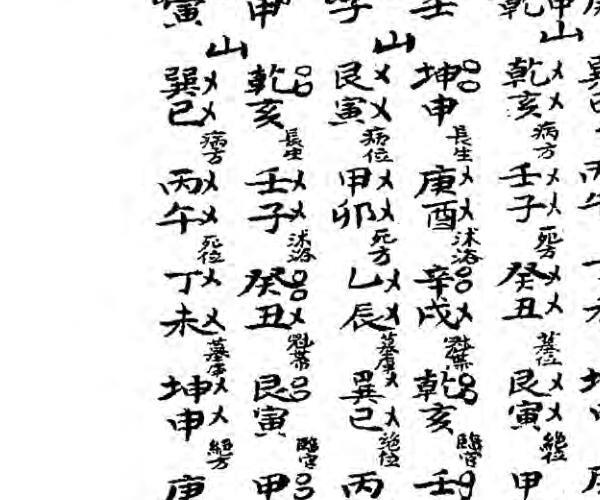 乾申
山
乾亥 病方
壬子 死方
癸丑 墓位
艮寅 絶位
甲
壬
山
坤申 長生
庚酉 沭浴
辛戌 冠帯
乾亥 臨官
壬
子
山
艮寅 病位
甲卯 死方
乙辰 墓庫
巽巳 絶位
丙
申
乾亥 長生
壬子 沭浴
癸丑 冠帯
艮寅 臨官
甲
寅
山
巽巳 病方
丙午 死位
丁未 墓庫
坤申 絶方
庚